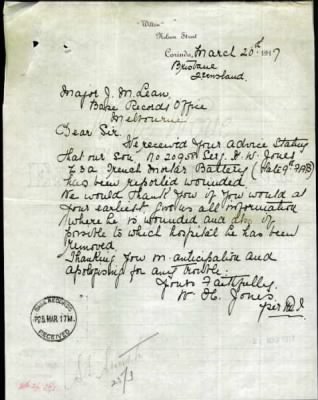 "Wilton"
Nelson Street
Corinda, March 20th 1917
Brisbane
Queensland
Major J. M. Lean
Base Records Office
Melbourne
Dear Sir.
We received Your Advice Stating
that our Son No 20950 Serg H. W. Jones
Z 3 A Trench Mortar Battery (late 9th FAB)
has been reported wounded.
We would Thank You if You would at
Your earliest, give us all information
Where he is wounded and also if
possible to which hospital he has been
removed.
Thanking You in anticipation and
apologising for any trouble.
Yours Faithfully
W. H. Jones.
per
BASE RECORDS
26 MAR. 17 M.
RECEIVED